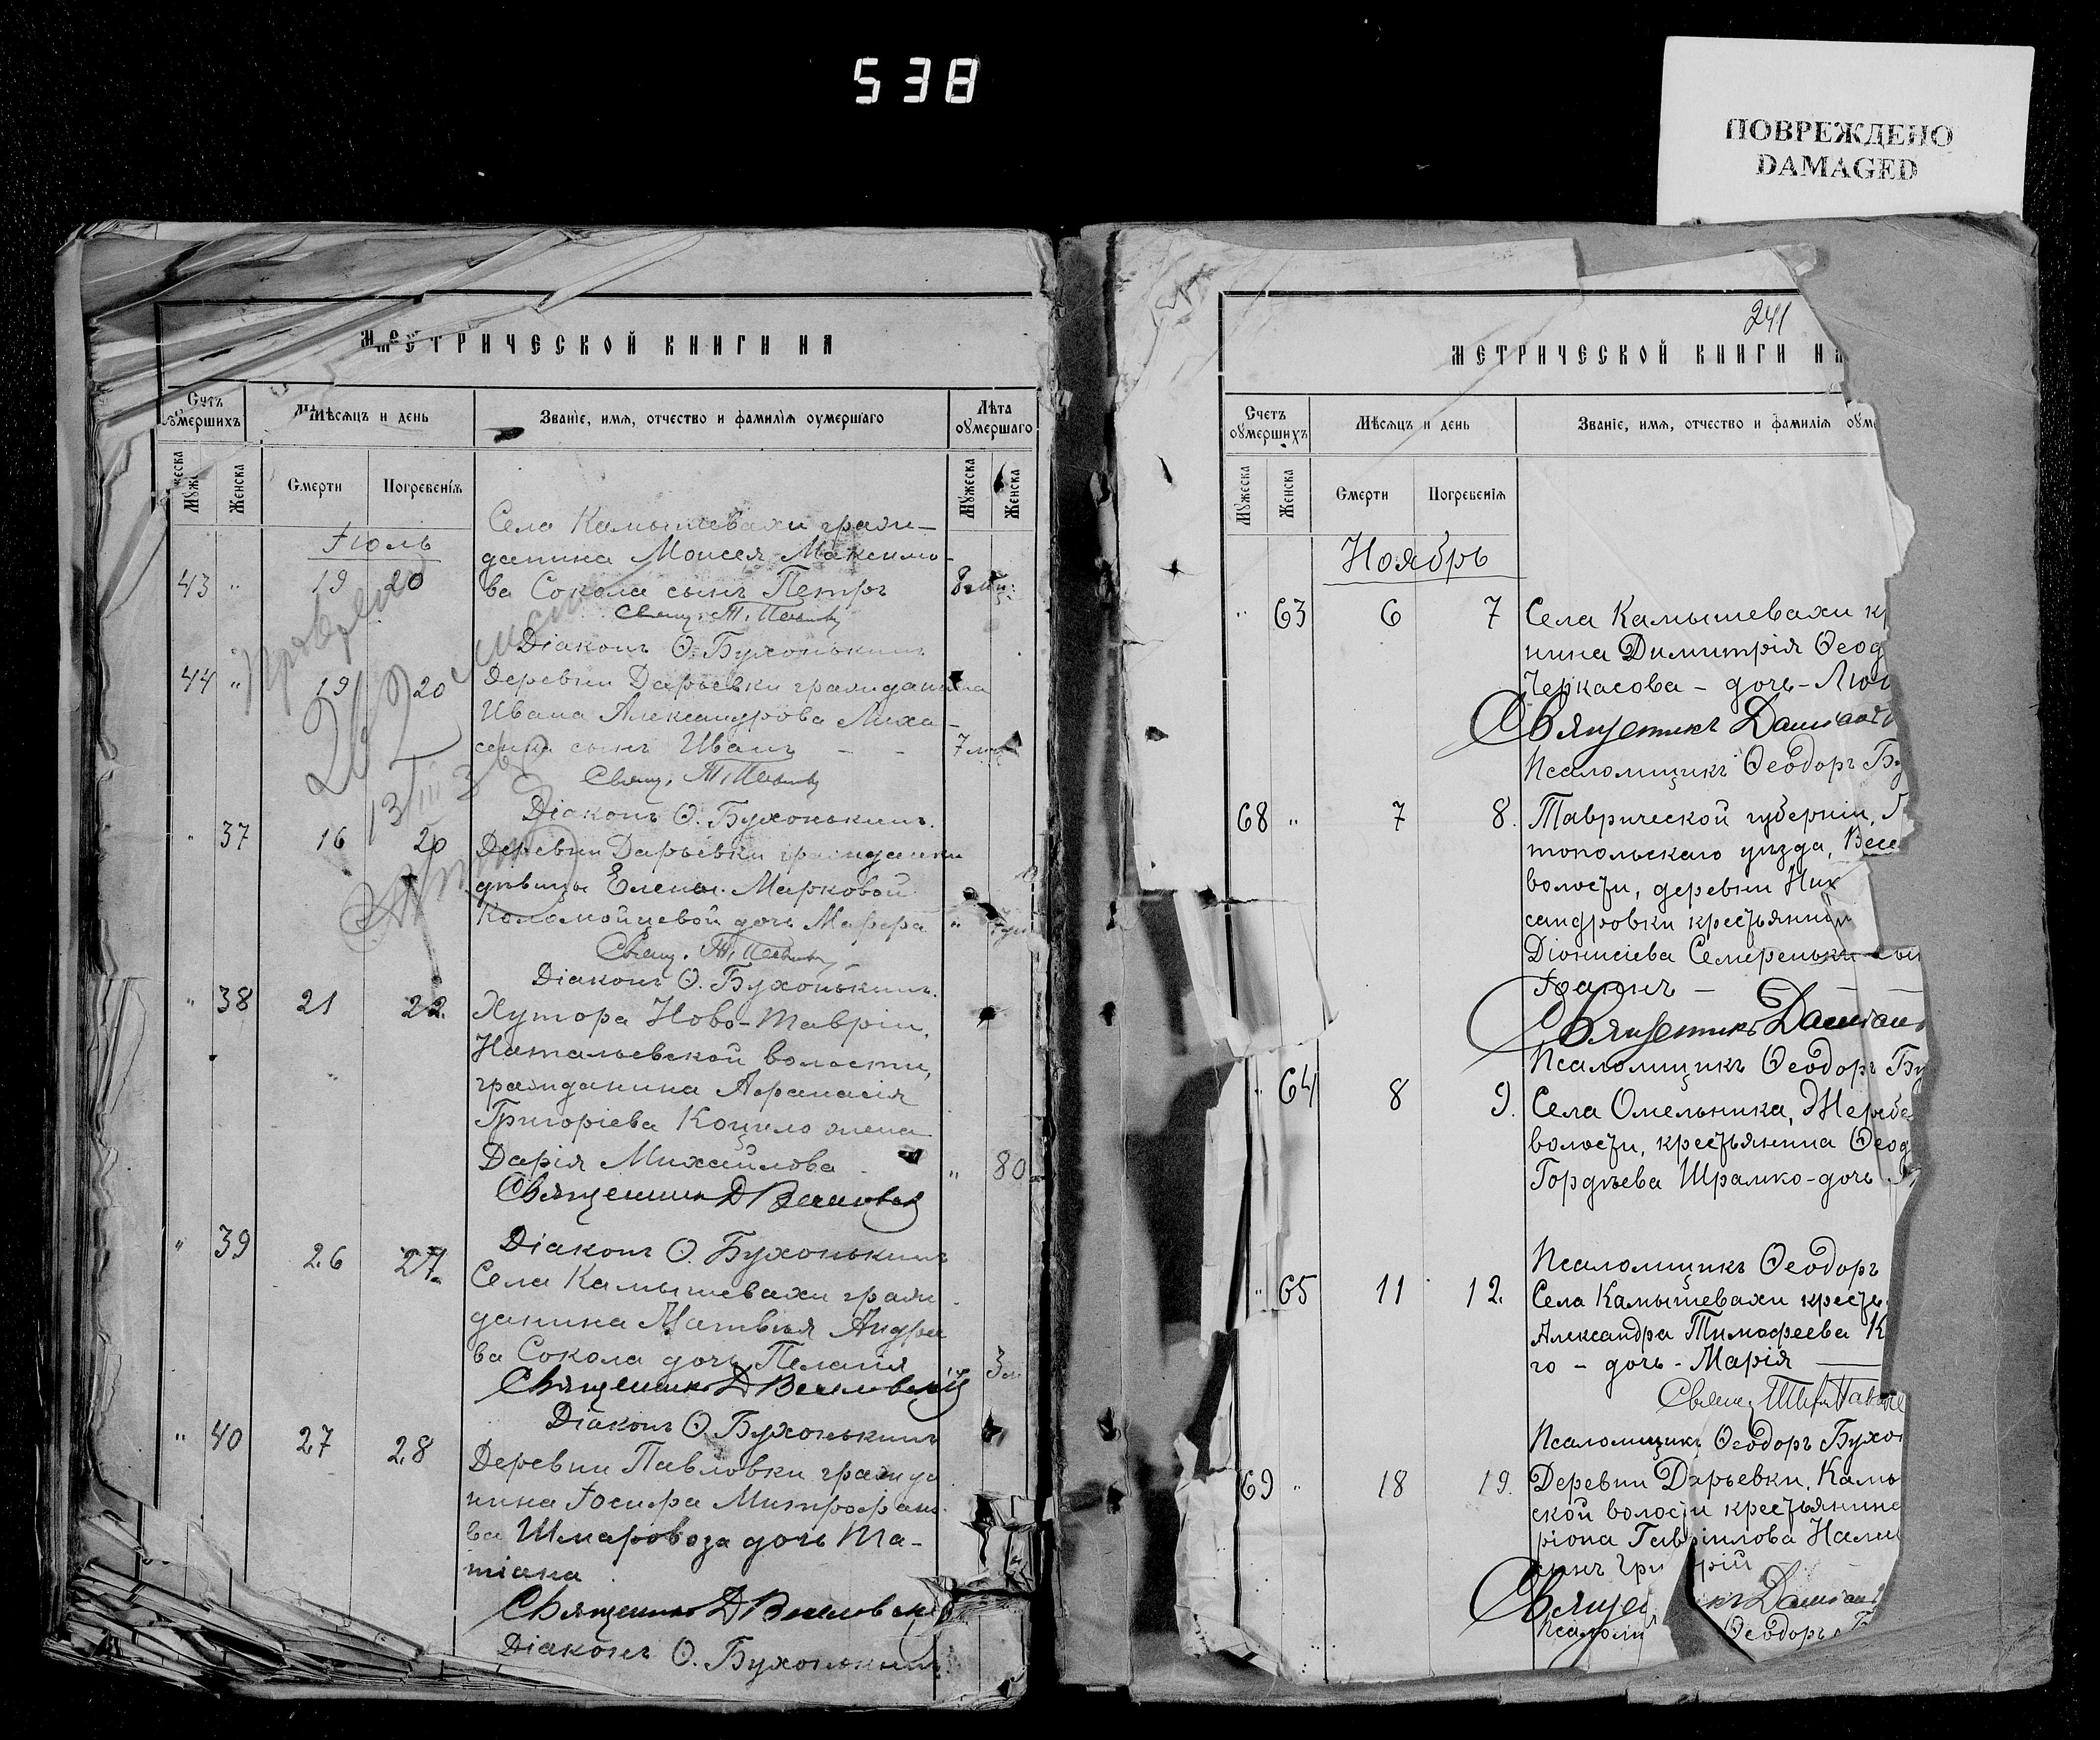 538
ПОВРЕЖДЕНО
DAMAGED
МЕТРИЧЕСКОЙ КНИГИ НА
Счетъ оумершихъ
Мѣсяцъ и день
Званіе, имя, отчество и фамилія оумершаго
Лѣта оумершаго
Мужеска
Женска
Смерти
Погребенія
Мужеска
Женска
Іюль
Села Камышевахи граж-
данина Моисея Максимо-
43 " 19 20 ва Сокола сынъ Петръ 8 мц.
Свящ. Т.
Діаконъ Ѳ. Бухонькинъ
44 " 19 20 Деревни Дарьевки гражданина
Ивана Александрова Лиха-
сенка сынъ Иванъ - - 7
Свящ. Т.
Діаконъ Ѳ. Бухонькинъ.
" 37 16 20 Деревни Дарьевки гражданки
дѣвицы Елены Марковой
Коломойцевой дочь Марфа "
Свящ. Т.
Діаконъ Ѳ. Бухонькинъ.
" 38 21 22. Хутора Ново-Тавріи,
Натальевской волости,
гражданина Афанасія
Григоріева Коцило жена
Дарія Михайлова " 80
Священникъ Д
Діаконъ Ѳ. Бухонькинъ
" 39 26 27. Села Камышевахи граж
данина Матвѣя Андре
ва Сокола дочь Пелагія 3
Священникъ Д
Діаконъ Ѳ. Бухонькинъ
" 40 27 28 Деревни Павловки гражда
нина Іосифа Митрофан
ва Шмаровоза дочь Та-
тіана
Священникъ Д
Діаконъ Ѳ. Бухонькинъ
241
МЕТРИЧЕСКОЙ КНИГИ НА
Счетъ оумершихъ
Мѣсяцъ и день
Званіе, имя, отчество и фамилія оуме
Мужеска
Женска
Смерти
Погребенія
Ноябрь
" 63 6 7 Села Камышевахи кр
нина Димитрія Ѳеод
Черкасова - дочь -
Священникъ
Псаломщикъ Ѳеодоръ Бу
68 " 7 8. Таврической губерніи,
топольскаго уѣзда, Весе
волости, деревни Ник
сандровки крестьянин
Діонисіева Семиреньки сын
Іоаннъ -
Священникъ
Псаломщикъ Ѳеодоръ Бу
" 64 8 9. Села Омельника, Жереб
волости, крестьянина Ѳеод
Гордѣева Шрамко - дочь
Псаломщикъ Ѳеодоръ
" 65 11 12. Села Камышевахи кресть
Александра Тимофеева К
го - дочь - Марія
Свящ.
Псаломщикъ Ѳеодоръ Бухон
69 " 18 19. Деревни Дарьевки, Камы
ской волости крестьянина
ріона Гавріилова Нали
сынъ Григорій
Ѳеодоръ